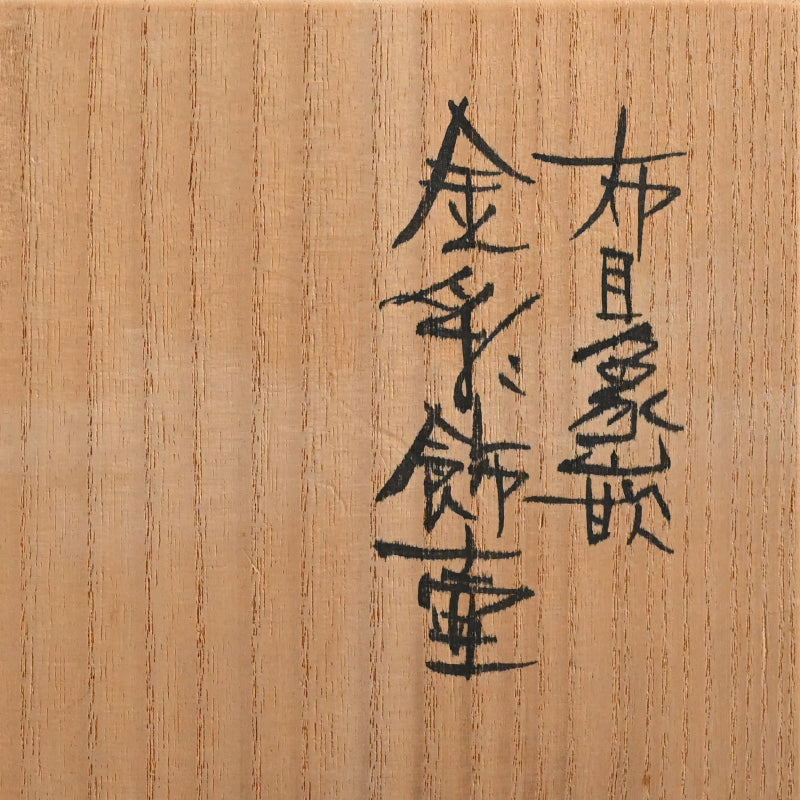 布目象嵌
金彩飾壷